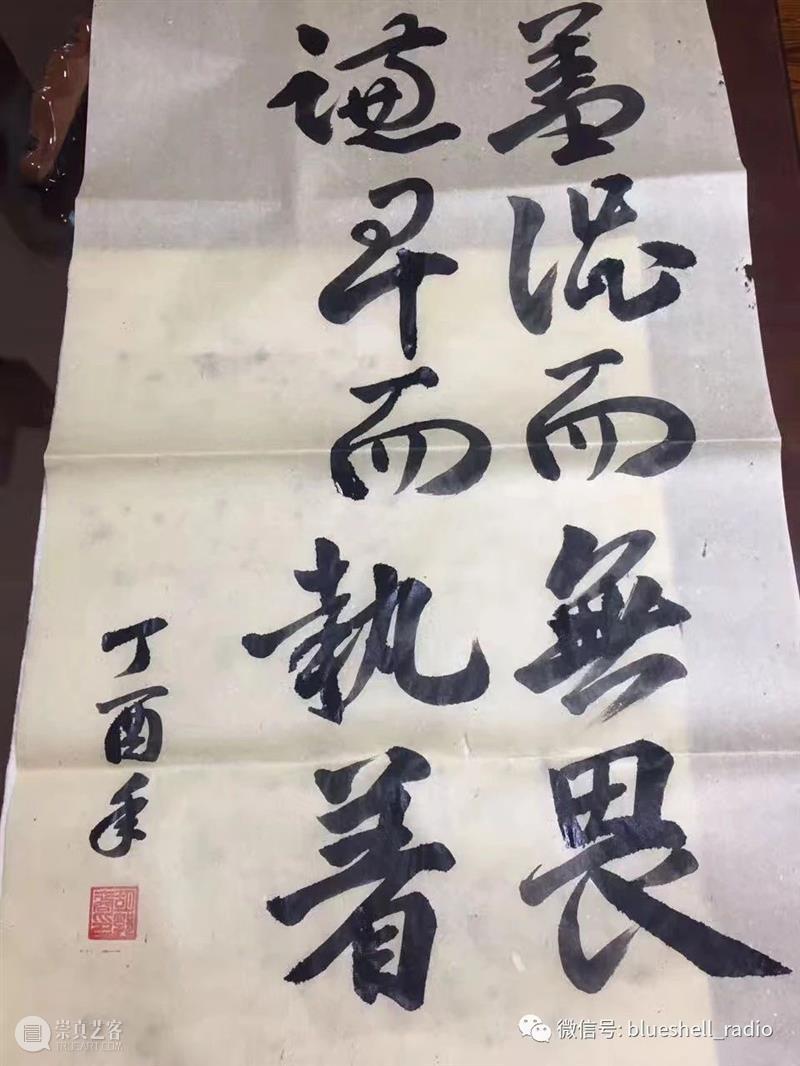 羞澀而無畏
謙卑而執着
丁酉年
崇真艺客
微信号: blueshell_radio